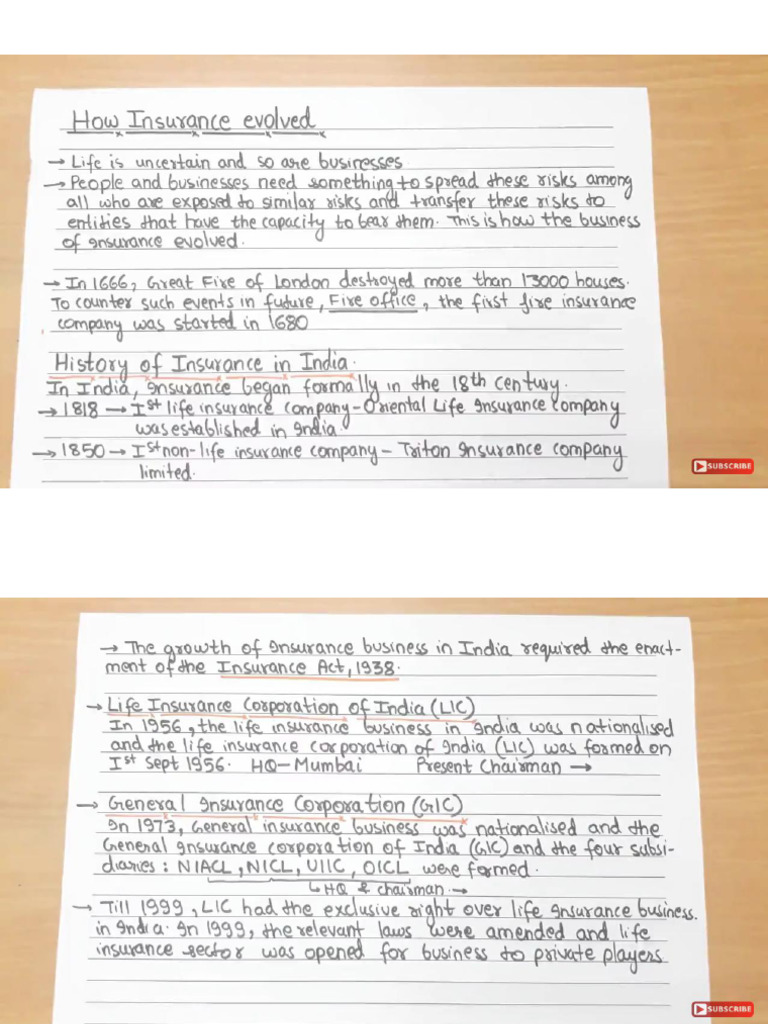 How Insurance evolved
→ Life is uncertain and so are businesses.
→ People and businesses need something to spread these risks among
all who are exposed to similar risks and transfer these risks to
entities that have the capacity to bear them. This is how the business
of Insurance evolved.
→ In 1666, Great Fire of London destroyed more than 13000 houses.
To counter such events in future, Fire office, the first fire insurance
company was started in 1680
History of Insurance in India.
In India, Insurance began formally in the 18th Century.
→ 1818 → Ist life insurance company - Oriental Life Insurance company
was established in India.
→ 1850 → Ist non-life insurance company - Triton Insurance company
limited.
SUBSCRIBE
→ The growth of Insurance business in India required the enact-
ment of the Insurance Act, 1938.
→ Life Insurance Corporation of India (LIC)
In 1956, the life insurance business in India was nationalised
and the life insurance corporation of India (LIC) was formed on
Ist Sept 1956. HQ - Mumbai Present Chairman →
→ General Insurance Corporation (GIC)
In 1973, General insurance business was nationalised and the
General Insurance corporation of India (GIC) and the four subsi-
diaries : NIACL, NICL, UIIC, OICL were formed.
↳ HQ & chairman →
→ Till 1999, LIC had the exclusive right over life Insurance business.
in India. In 1999, the relevant laws were amended and life
insurance sector was opened for business to private players
SUBSCRIBE